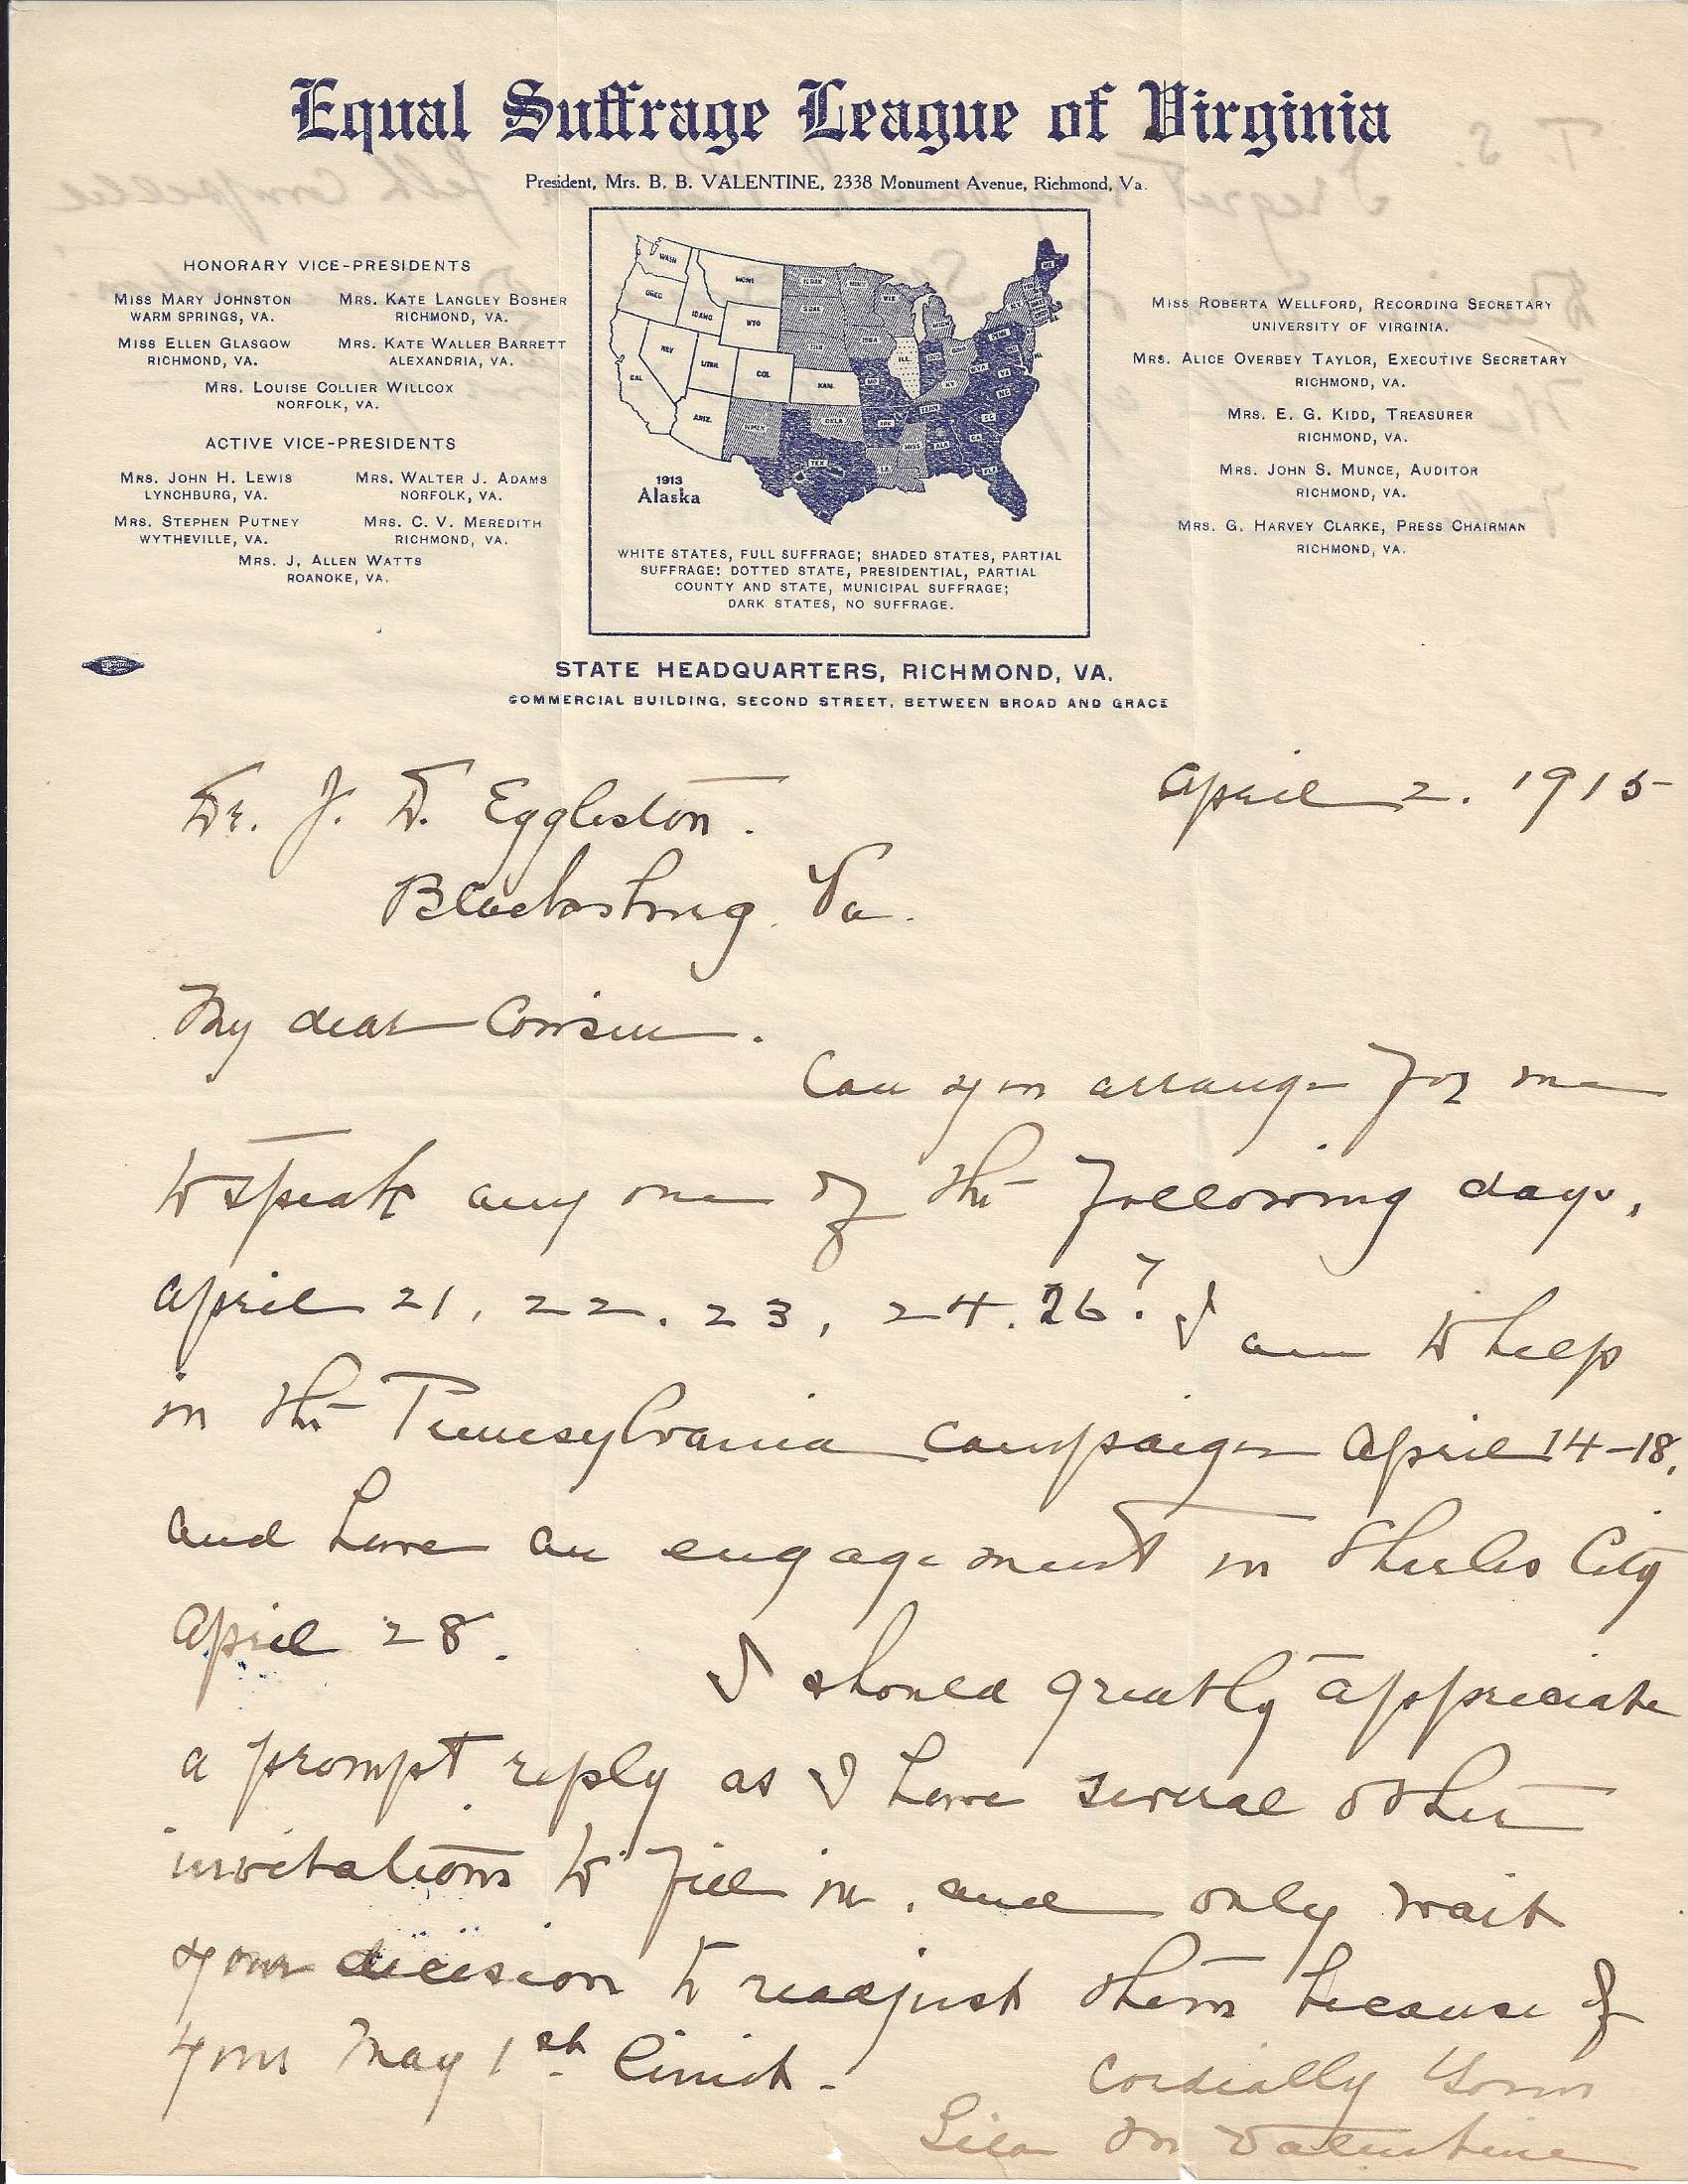 Equal Suffrage League of Virginia
President, Mrs. B. B. VALENTINE, 2338 Monument Avenue, Richmond, Va.
HONORARY VICE-PRESIDENTS
MISS MARY JOHNSTON
WARM SPRINGS, VA.
MRS. KATE LANGLEY BOSHER
RICHMOND, VA.
MISS ELLEN GLASGOW
RICHMOND, VA.
MRS. KATE WALLER BARRETT
ALEXANDRIA, VA.
MRS. LOUISE COLLIER WILLCOX
NORFOLK, VA.
ACTIVE VICE-PRESIDENTS
MRS. JOHN H. LEWIS
LYNCHBURG, VA.
MRS. WALTER J. ADAMS
NORFOLK, VA.
MRS. STEPHEN PUTNEY
WYTHEVILLE, VA.
MRS. C. V. MEREDITH
RICHMOND, VA.
MRS. J. ALLEN WATTS
ROANOKE, VA.
WASH
MONT
OREG
IDAHO
WYO
NEV
UTAH
COL
KAN.
CAL
ARIZ.
N.MEX
OKLA
TEX
ILL
1913
Alaska
WHITE STATES, FULL SUFFRAGE; SHADED STATES, PARTIAL
SUFFRAGE: DOTTED STATE, PRESIDENTIAL, PARTIAL
COUNTY AND STATE, MUNICIPAL SUFFRAGE;
DARK STATES, NO SUFFRAGE.
MISS ROBERTA WELLFORD, RECORDING SECRETARY
UNIVERSITY OF VIRGINIA.
MRS. ALICE OVERBEY TAYLOR, EXECUTIVE SECRETARY
RICHMOND, VA.
MRS. E. G. KIDD, TREASURER
RICHMOND, VA.
MRS. JOHN S. MUNCE, AUDITOR
RICHMOND, VA.
MRS. G. HARVEY CLARKE, PRESS CHAIRMAN
RICHMOND, VA.
STATE HEADQUARTERS, RICHMOND, VA.
COMMERCIAL BUILDING, SECOND STREET, BETWEEN BROAD AND GRACE
April 2. 1915
Dr. J. D. Eggleston.
Blacksburg. Va.
My dear Cousin.
Can you arrange for me
to speak any one of the following days,
April 21, 22. 23, 24. 26? I am to help
in the Pennsylvania campaign April 14-18.
and have an engagement in Charles City
April 28.
I should greatly appreciate
a prompt reply as I have several other
invitations to fill in, and only wait
your decision to readjust them because of
your May 1st limit.
Cordially Yours
Lila M Valentine